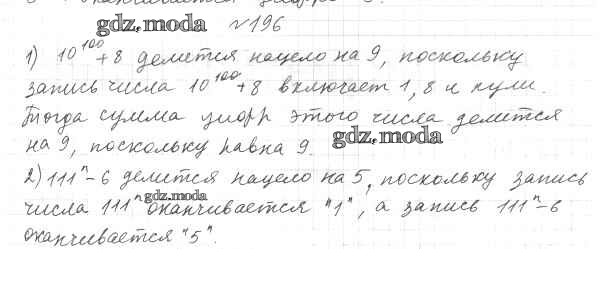 оканчивается цифрой
gdz.moda №196
1) 10¹⁰⁰+8 делится нацело на 9, поскольку
запись числа 10¹⁰⁰+8 включает 1, 8 и нули.
Тогда сумма цифр этого числа делится
на 9, поскольку равна 9. gdz.moda
2) 111ⁿ-6 делится нацело на 5, поскольку запись
gdz.moda
числа 111ⁿ оканчивается "1", а запись 111ⁿ-6
оканчивается "5".